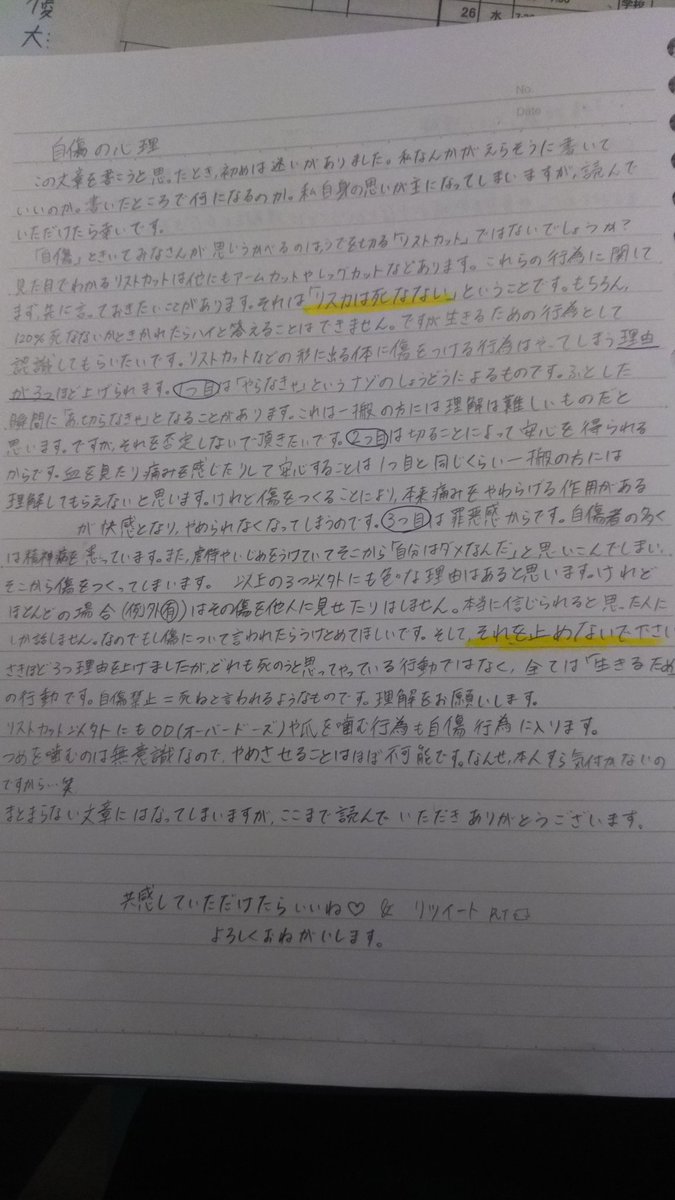 優
大:
26 水
学校
No.
Date
自傷の心理
この文章を書こうと思ったとき、初めは迷いがありました。私なんかがえらそうに書いて
いいのか。書いたところで何になるのか。私自身の思いが主になってしまいますが、読んで
いただけたら幸いです。
「自傷」ときいてみなさんが思いうかべるのはうでを切る「リストカット」ではないでしょうか?
見た目でわかるリストカットは他にもアームカットやレッグカットなどあります。これらの行為に関して
まず、先に言っておきたいことがあります。それは「リスカは死なない」ということです。もちろん、
120%死なないかときかれたらハイと答えることはできません。ですが生きるための行為として
認識してもらいたいです。リストカットなどの形に出る体に傷をつける行為はやってしまう理由
が3つほど上げられます。1つ目は「やらなきゃ」というナゾのしょうどうによるものです。ふとした
瞬間に「あ、切らなきゃ」となることがあります。これは一搬の方には理解は難しいものだと
思います。ですが、それを否定しないで頂きたいです。2つ目は切ることによって安心を得られる
からです。血を見たり痛みを感じたりして安心することは1つ目と同じくらい一搬の方には
理解してもらえないと思います。けれど傷をつくることにより、本来痛みをやわらげる作用がある
が快感となり、やめられなくなってしまうのです。3つ目は罪悪感からです。自傷者の多く
は精神病を患っています。また、虐待やいじめをうけていてそこから「自分はダメなんだ」と思いこんでしまい、
そこから傷をつくってしまいます。 以上の3つ以外にも色々な理由はあると思います。けれど
ほとんどの場合(例外有)はその傷を他人に見せたりはしません。本当に信じられると思った人に
しか話しません。なのでもし傷について言われたらうけとめてほしいです。そして、それを止めないで下さい
さきほど3つ理由を上げましたが、どれも死のうと思ってやっている行動ではなく、全ては「生きるため
の行動です。自傷禁止=死ねと言われるようなものです。理解をお願いします。
リストカット以外にもOD(オーバードーズ)や爪を噛む行為も自傷行為に入ります。
つめを噛むのは無意識なので、やめさせることはほぼ不可能です。なんせ、本人すら気付かないの
ですから…笑
まとまらない文章にはなってしまいますが、ここまで読んでいただきありがとうございます。
共感していただけたらいいね♡ & リツイート RT
よろしくおねがいします。